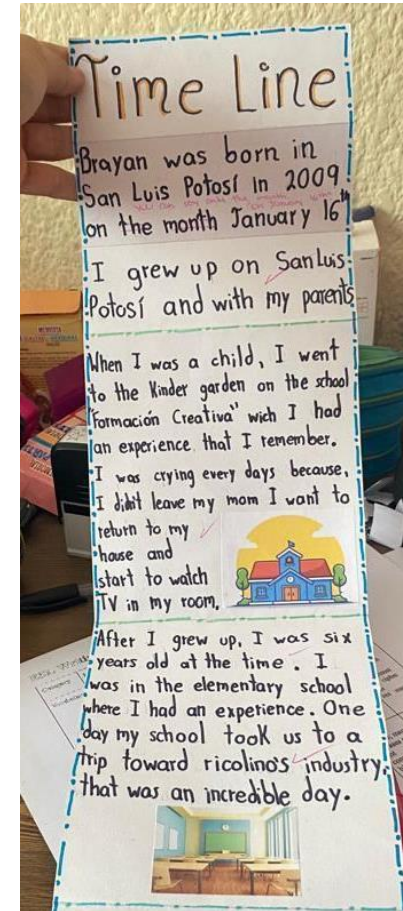 Time Line
Brayan was born in
San Luis Potosí in 2009
on the month January 16th
I grew up on San Luis
Potosí and with my parents
When I was a child, I went
to the Kinder garden on the school
"Formación Creativa" wich I had
an experience that I remember.
I was crying every days because,
I didn't leave my mom I want to
return to my
house and
start to watch
TV in my room.
After I grew up, I was six
years old at the time. I
was in the elementary school
where I had an experience. One
day my school took us to a
trip toward ricolino's industry,
that was an incredible day.